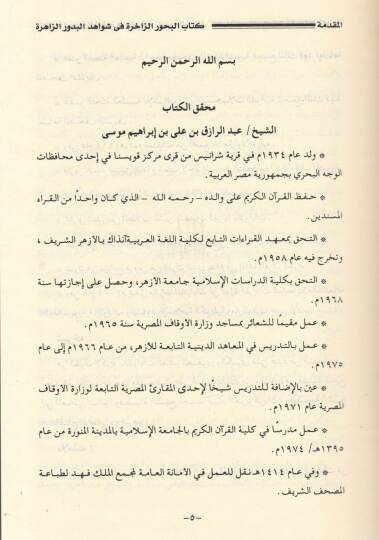 المقدمة كتاب البحور الزاخرة فى شواهد البدور الزاهرة
بسم الله الرحمن الرحيم
محقق الكتاب
الشيخ / عبد الرازق بن على بن إبراهيم موسى
* ولد عام ١٩٣٤م في قرية شرانيس من قرى مركز قويسنا في إحدى محافظات
الوجه البحري بجمهورية مصر العربية.
* حفظ القرآن الكريم على والده - رحمه الله - الذي كان واحداً من القراء
المسندين.
* التحق بمعهد القراءات التابع لكلية اللغة العربية آنذاك بالأزهر الشريف ،
وتخرج فيه عام ١٩٥٨م.
* التحق بكلية الدراسات الإسلامية جامعة الأزهر، وحصل على إجازتها سنة
١٩٦٨م.
* عمل مقيمًا للشعائر بمساجد وزارة الأوقاف المصرية سنة ١٩٦٥م.
* عمل بالتدريس في المعاهد الدينية التابعة للأزهر، من عام ١٩٦٦م إلى عام
١٩٧٥م.
* عين بالإضافة للتدريس شيخًا لإحدى المقارئ المصرية التابعة لوزارة الأوقاف
المصرية عام ١٩٧١م.
* عمل مدرسًا في كلية القرآن الكريم بالجامعة الإسلامية بالمدينة المنورة من عام
١٣٩٥هـ/ ١٩٧٤م.
* وفي عام ١٤١٤هـ نقل للعمل في الأمانة العامة لمجمع الملك فهد لطباعة
المصحف الشريف.
- ٥ -